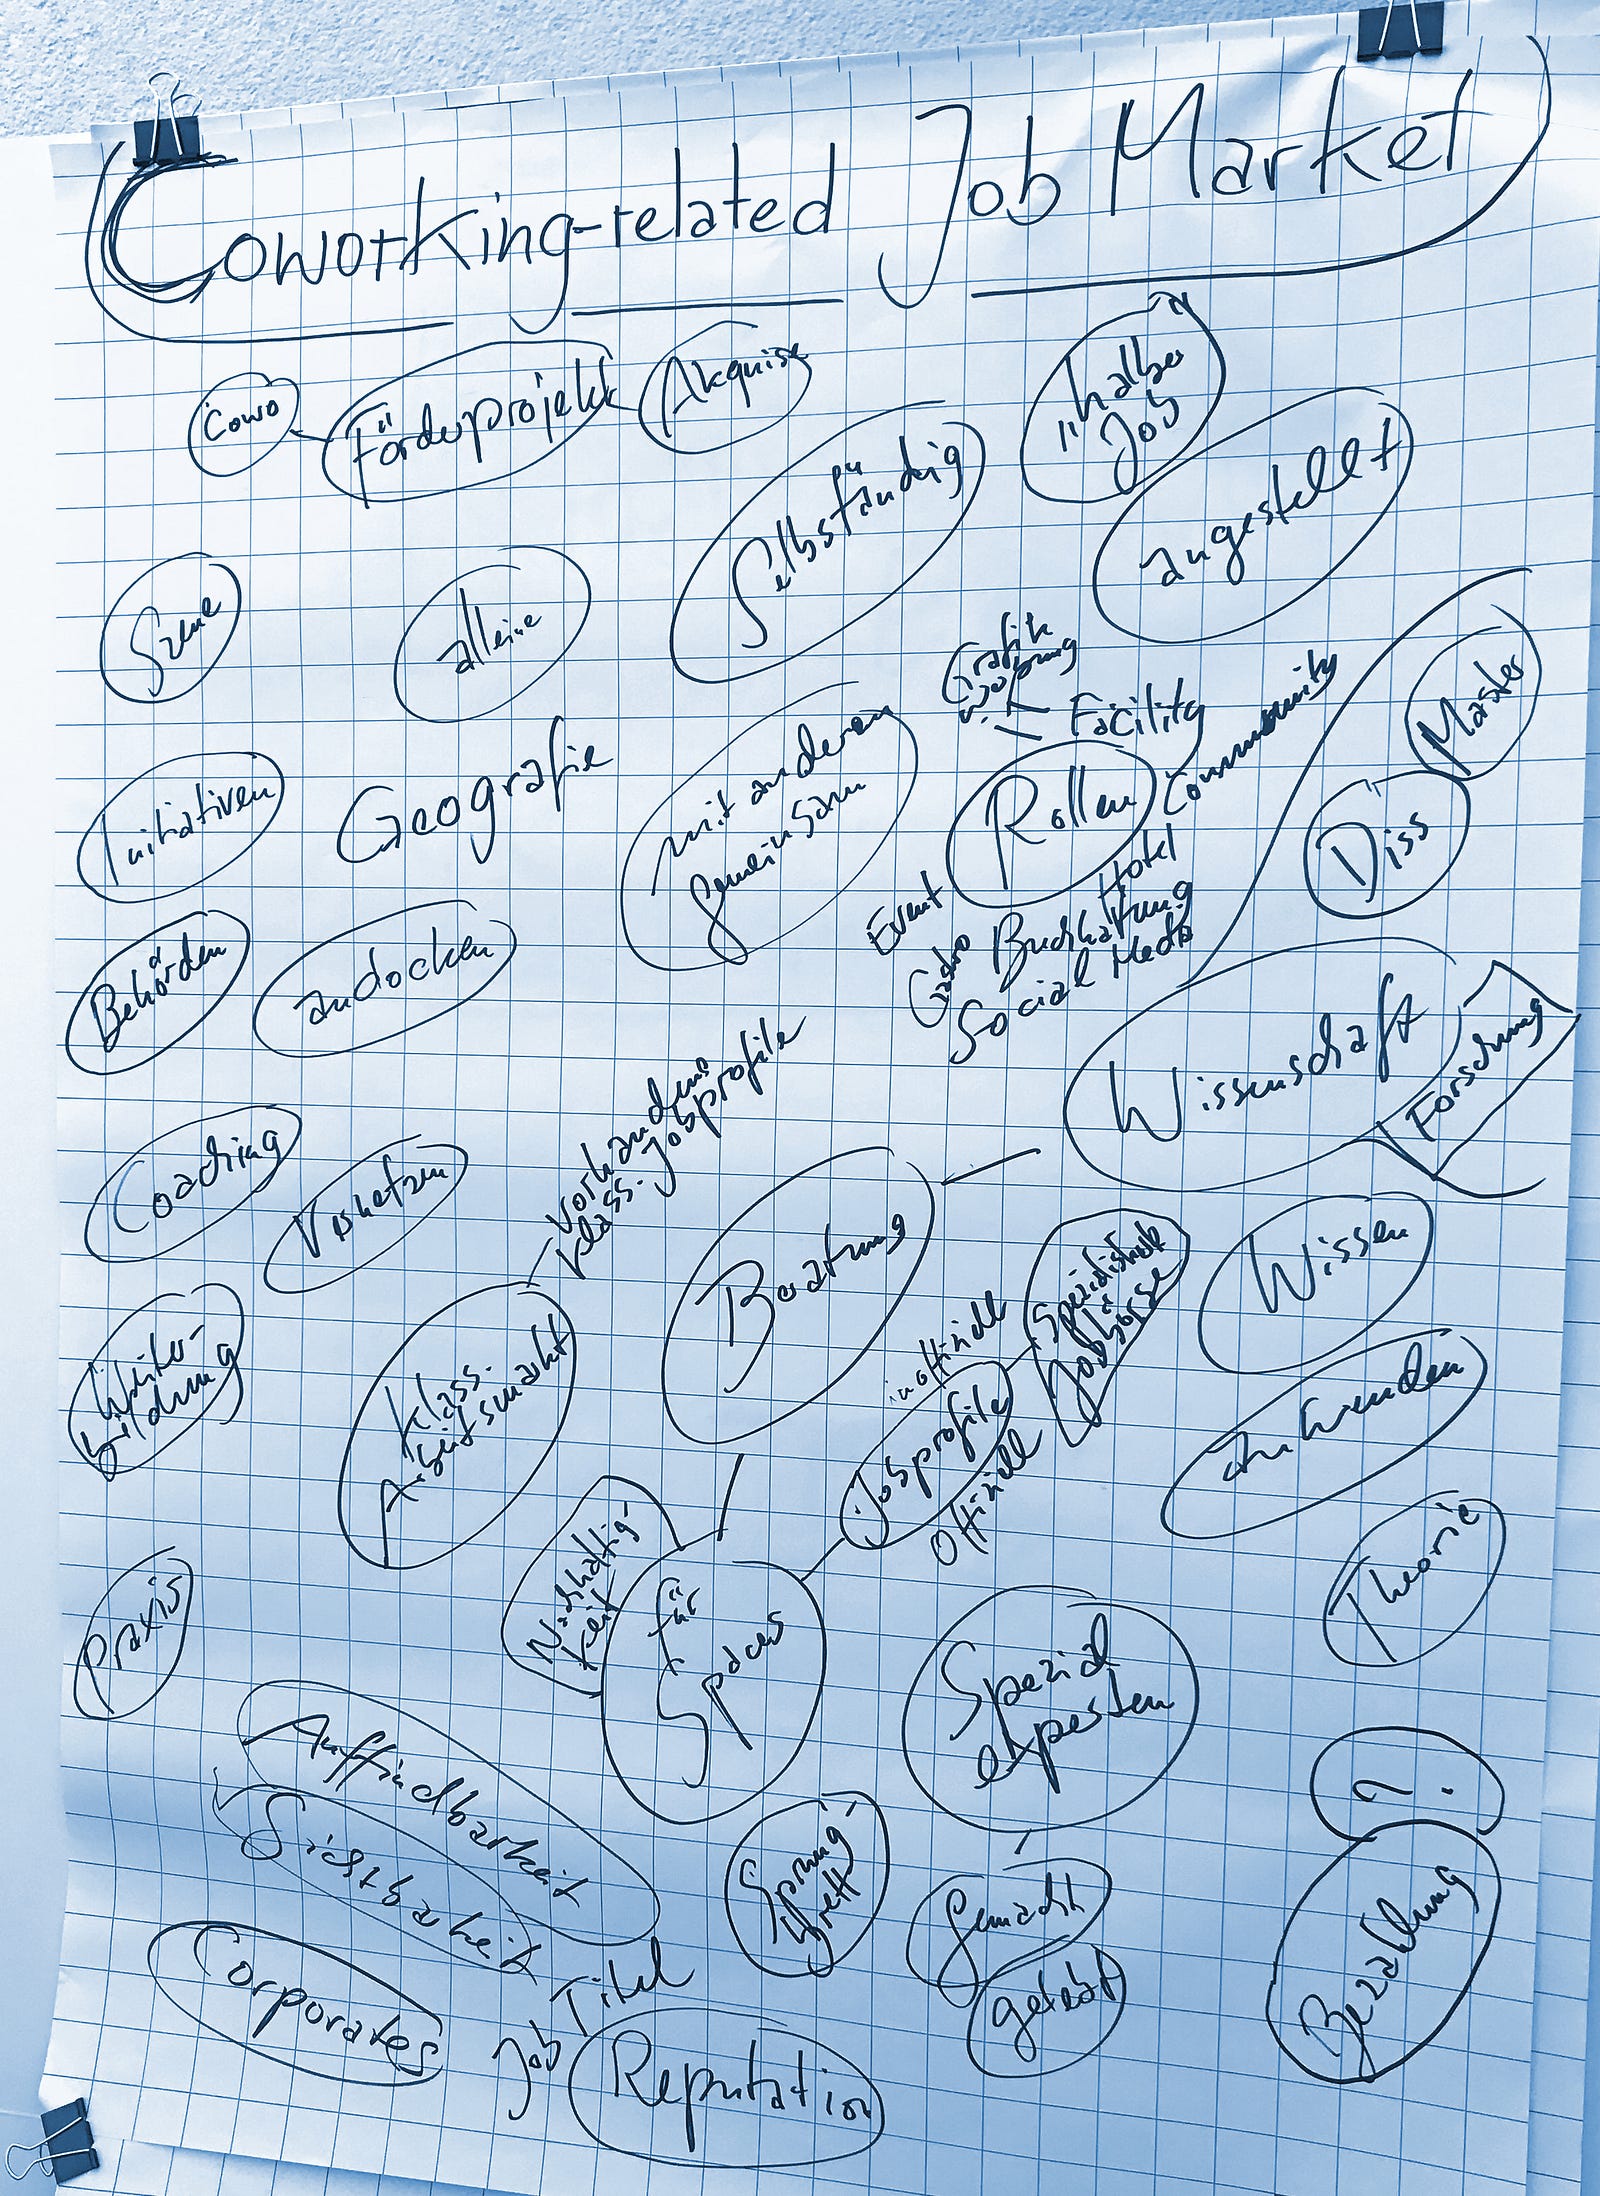 Coworking-related Job Market
Cowo
Förderprojekt
Akquise
"halber
Job"
Selbständig
angestellt
Szene
alleine
Grafik
Facility
Community
Master
Initiativen
Geografie
mit anderen
gemeinsam
Rollen
Diss
Hotel
Event
Gastro
Buchhaltung
Social Media
Behörden
andocken
Wissenschaft
Forschung
vorhandene
klass. Jobprofile
Coaching
Vernetzen
Beratung
Wissen
Weiter-
bildung
Klass.
Arbeitsmarkt
inoffiziell
Jobprofile
offiziell
Jobbörse
anwenden
Nachhaltig-
keit
für
Spaces
Theorie
Praxis
Spezial
experten
Auffindbarkeit
Sichtbarkeit
Sprung-
brett
?
Bezahlung
gemacht
gelebt
Corporates
Job Titel
Reputation